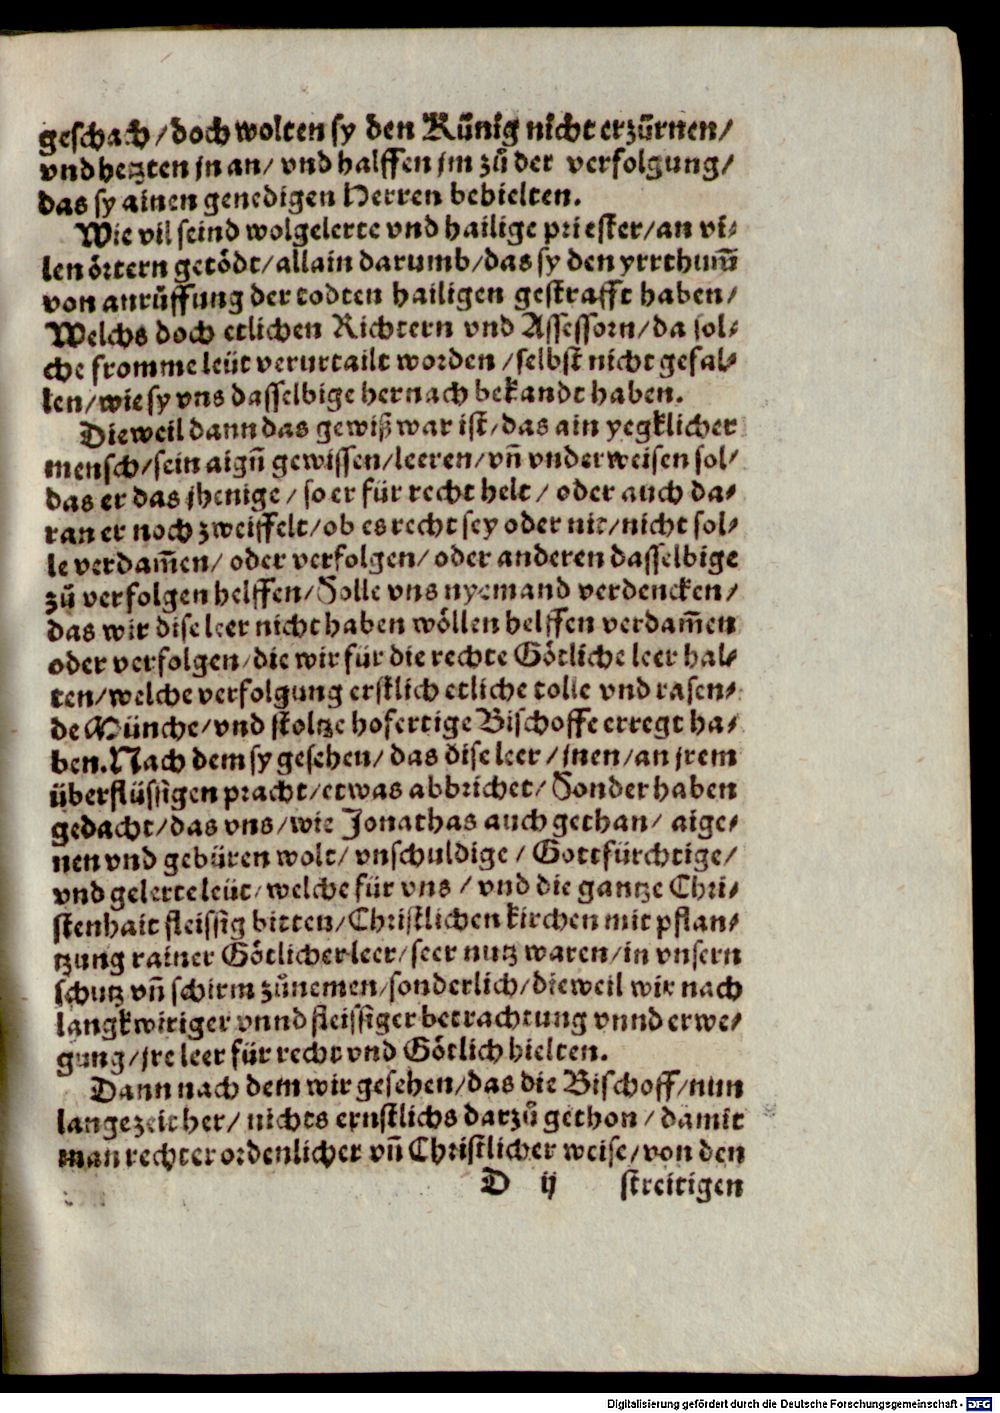 geschach/doch wolten sy den Künig nicht erzürnen/
vnd hetzten jn an/ vnd halffen jm zů der verfolgung/
das sy ainen genedigen Herren behielten.
Wie vil seind wolgelerte vnd hailige priester/an vi⸗
len örtern getödt/allain darumb/das sy den yrrthum̃
von anrůffung der todten hailigen gestrafft haben/
Welchs doch etlichen Richtern vnd Assessorn/da sol⸗
che fromme leüt verurtailt worden /selbst nicht gefal⸗
len/wie sy vns dasselbige hernach bekandt haben.
Dieweil dann das gewiß war ist/das ain yegklicher
mensch/sein aigñ gewissen/leeren/vñ vnderweisen sol/
das er das jhenige/ so er für recht helt/ oder auch da⸗
ran er noch zweiffelt/ob es recht sey oder nit/nicht sol⸗
le verdam̃en/ oder verfolgen/ oder anderen dasselbige
zů verfolgen helffen/Solle vns nyemand verdencken/
das wir dise leer nicht haben wöllen helffen verdam̃en
oder verfolgen/die wir für die rechte Götliche leer hal⸗
ten/welche verfolgung erstlich etliche tolle vnd rasen⸗
de Münche/vnd stoltze hofertige Bischoffe erregt ha⸗
ben. Nach dem sy gesehen/ das dise leer/jnen/an jrem
überflüssigen pracht/etwas abbrichet/Sonder haben
gedacht/das vns/wie Jonathas auch gethan/ aige⸗
nen vnd gebüren wolt/ vnschuldige/ Gottfürchtige/
vnd gelerte leüt/welche für vns/ vnd die gantze Chri⸗
stenhait fleissig bitten/Christlichen kirchen mit pflan⸗
tzung rainer Götlicher leer/seer nutz waren/in vnsern
schutz vñ schirm zůnemen/sonderlich/dieweil wir nach
langkwiriger vnnd fleissiger betrachtung vnnd erwe⸗
gung/jre leer für recht vnd Götlich hielten.
Dann nach dem wir gesehen/das die Bischoff/nun
lange zeit her/ nichts ernstlichs darzů gethon/ damit
man rechter ordenlicher vñ Christlicher weise/von den
D ij streitigen
Digitalisierung gefördert durch die Deutsche Forschungsgemeinschaft - DFG